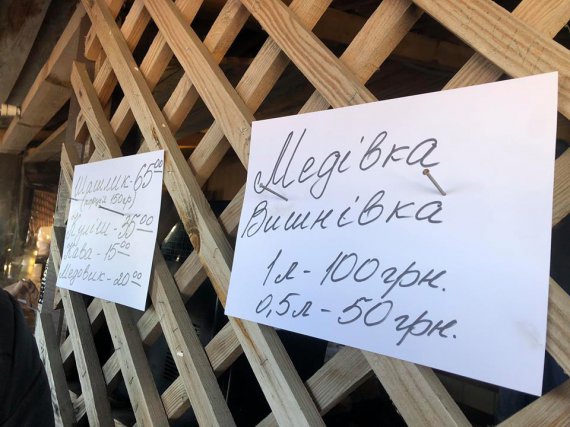 Шашлик - 65⁰⁰
(порція 150гр)
Куліш - 35⁰⁰
Кава - 15⁰⁰
Медовик - 20⁰⁰
Медівка
Вишнівка
1л - 100грн.
0,5л - 50грн.